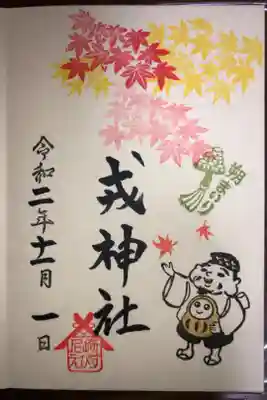 朔まいり
戎神社
令和二年十一月一日
尼崎えびす